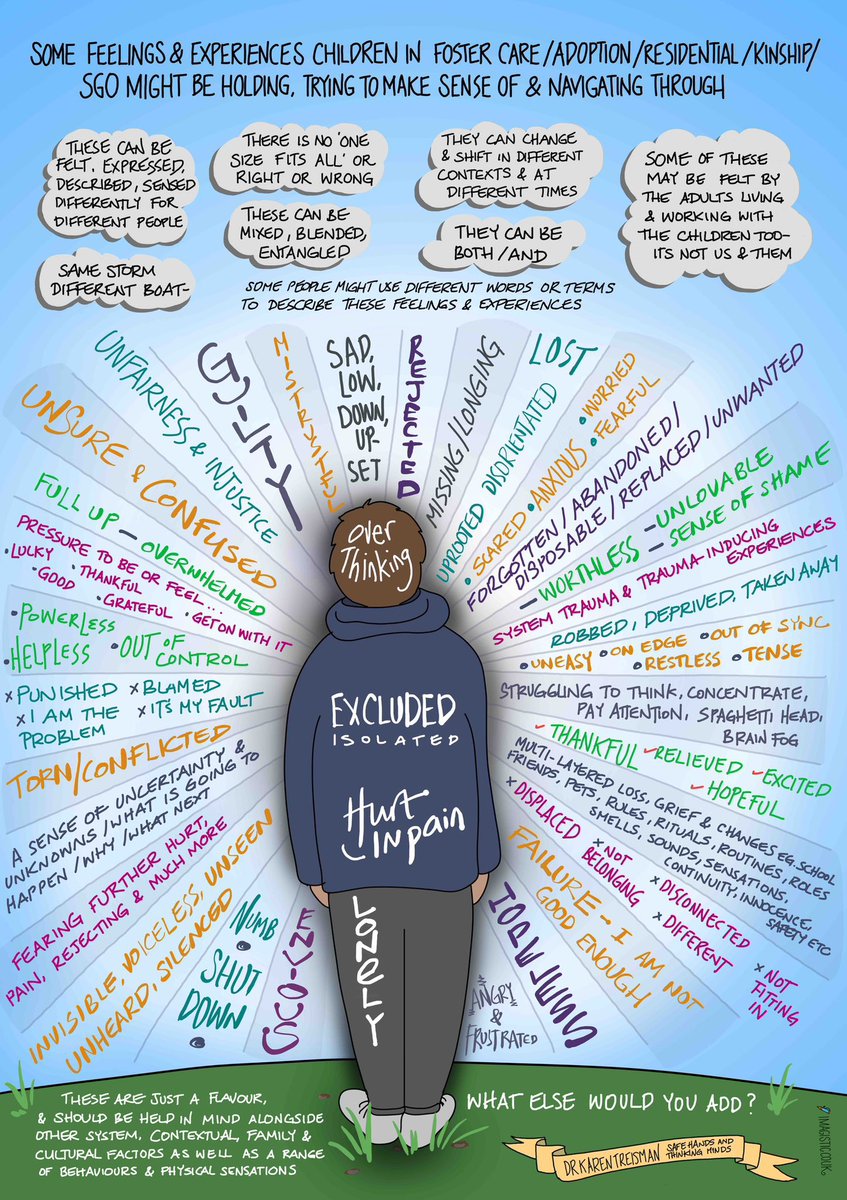 SOME FEELINGS & EXPERIENCES CHILDREN IN FOSTER CARE/ADOPTION/RESIDENTIAL/KINSHIP/
SGO MIGHT BE HOLDING, TRYING TO MAKE SENSE OF & NAVIGATING THROUGH
THESE CAN BE
FELT, EXPRESSED,
DESCRIBED, SENSED
DIFFERENTLY FOR
DIFFERENT PEOPLE
THERE IS NO 'ONE
SIZE FITS ALL' OR
RIGHT OR WRONG
THEY CAN CHANGE
& SHIFT IN DIFFERENT
CONTEXTS & AT
DIFFERENT TIMES
SOME OF THESE
MAY BE FELT BY
THE ADULTS LIVING
& WORKING WITH
THE CHILDREN TOO-
IT'S NOT US & THEM
SAME STORM
DIFFERENT BOAT-
THESE CAN BE
MIXED, BLENDED,
ENTANGLED
THEY CAN BE
BOTH/AND
SOME PEOPLE MIGHT USE DIFFERENT WORDS OR TERMS
TO DESCRIBE THESE FEELINGS & EXPERIENCES
INVISIBLE, VOICELESS, UNSEEN
UNHEARD, SILENCED
FEARING FURTHER HURT,
PAIN, REJECTING & MUCH MORE
A SENSE OF UNCERTAINTY &
UNKNOWNS/WHAT IS GOING TO
HAPPEN/WHY/WHAT NEXT
TORN/CONFLICTED
x PUNISHED x BLAMED
x I AM THE x IT'S MY FAULT
PROBLEM
• POWERLESS
• HELPLESS • OUT OF
CONTROL
PRESSURE TO BE OR FEEL...
• LUCKY • THANKFUL
• GOOD • GRATEFUL • GET ON WITH IT
FULL UP – OVERWHELMED
UNSURE & CONFUSED
UNFAIRNESS & INJUSTICE
GUILTY
MISTRUSTFUL
SAD,
LOW,
DOWN,
UP
SET
REJECTED
MISSING/LONGING
LOST
UPROOTED DISORIENTATED
• SCARED • ANXIOUS • WORRIED
• FEARFUL
FORGOTTEN/ABANDONED/
DISPOSABLE/REPLACED/UNWANTED
– WORTHLESS – UNLOVABLE
– SENSE OF SHAME
SYSTEM TRAUMA & TRAUMA-INDUCING
EXPERIENCES
ROBBED, DEPRIVED, TAKEN AWAY
• UNEASY • ON EDGE • OUT OF SYNC
• RESTLESS • TENSE
STRUGGLING TO THINK, CONCENTRATE,
PAY ATTENTION, SPAGHETTI HEAD,
BRAIN FOG
✓ THANKFUL ✓ RELIEVED ✓ EXCITED
✓ HOPEFUL
MULTI-LAYERED LOSS, GRIEF & CHANGES EG. SCHOOL
FRIENDS, PETS, RULES, RITUALS, ROUTINES, ROLES
SMELLS, SOUNDS, SENSATIONS,
CONTINUITY, INNOCENCE,
SAFETY ETC
x DISPLACED x NOT
BELONGING
x DISCONNECTED
x DIFFERENT
x NOT
FITTING
IN
FAILURE – I AM NOT
GOOD ENOUGH
ANGRY
&
FRUSTRATED
ENVIOUS
NUMB •
SHUT
DOWN •
Over
Thinking
EXCLUDED
ISOLATED
Hurt
IN pain
LONELY
THESE ARE JUST A FLAVOUR,
& SHOULD BE HELP IN MIND ALONGSIDE
OTHER SYSTEM, CONTEXTUAL, FAMILY &
CULTURAL FACTORS AS WELL AS A RANGE
OF BEHAVIOURS & PHYSICAL SENSATIONS
WHAT ELSE WOULD YOU ADD?
DR KAREN TREISMAN SAFE HANDS AND
THINKING MINDS
IMAGISTIC.CO.UK